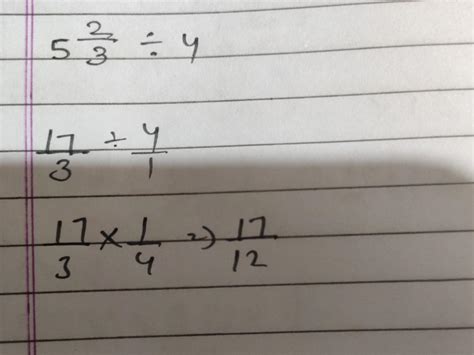 5 2/3 ÷ 4
17/3 ÷ 4/1
17/3 × 1/4 => 17/12